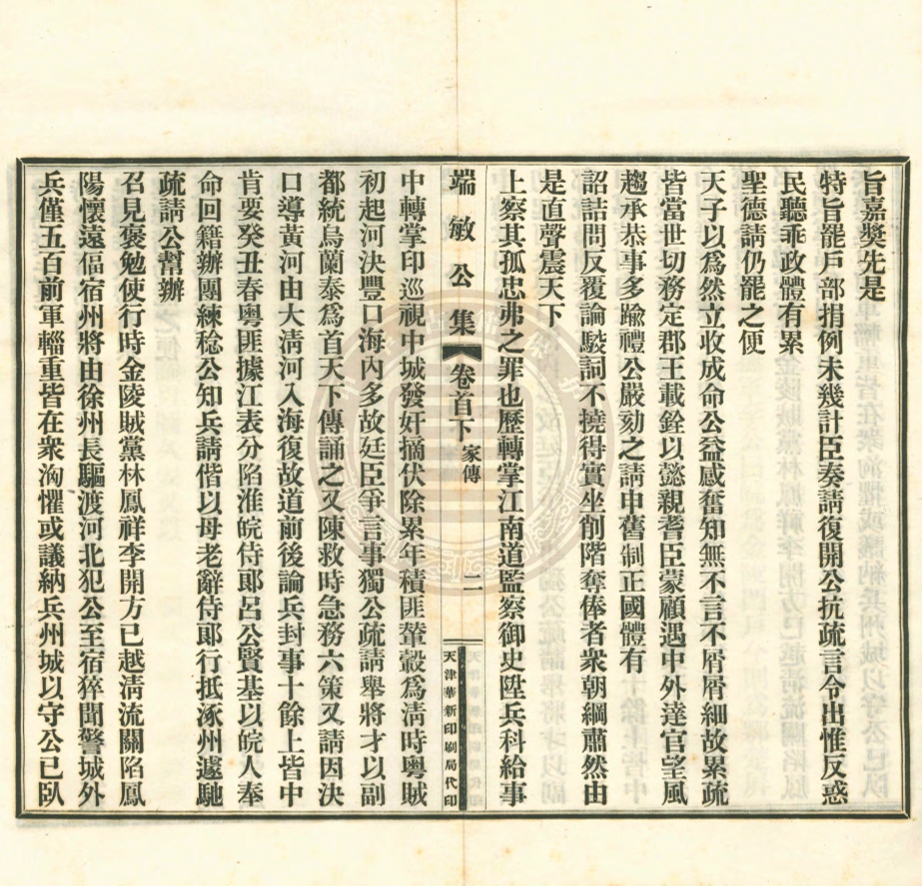 旨嘉獎先是
特旨罷戶部捐例未幾計臣奏請復開公抗疏言令出惟反惑
民聽乖政體有累
聖德請仍罷之便
天子以爲然立收成命公益感奮知無不言不屑屑細故累疏
皆當世切務定郡王載銓以懿親耆臣蒙顧遇中外達官望風
趨承恭事多踰禮公嚴劾之請申舊制正國體有
詔詰問反覆論駁詞不撓得實坐削階奪俸者衆朝綱肅然由
是直聲震天下
上察其孤忠弗之罪也歷轉掌江南道監察御史陞兵科給事
端敏公集
卷首下 家傳
二
天津華新印刷局代印
中轉掌印巡視中城發奸摘伏除累年積匪輦轂爲淸時粵賊
初起河決豐口海內多故廷臣爭言事獨公疏請舉將才以副
都統烏蘭泰爲首天下傳誦之又陳救時急務六策又請因決
口導黃河由大淸河入海復故道前後論兵封事十餘上皆中
肯要癸丑春粵匪據江表分陷淮皖侍郞呂公賢基以皖人奉
命回籍辦團練稔公知兵請偕以母老辭侍郞行抵涿州遽馳
疏請公幫辦
召見褒勉使行時金陵賊黨林鳳祥李開方已越淸流關陷鳳
陽懷遠偪宿州將由徐州長驅渡河北犯公至宿猝聞警城外
兵僅五百前軍輜重皆在衆洶懼或議納兵州城以守公已臥